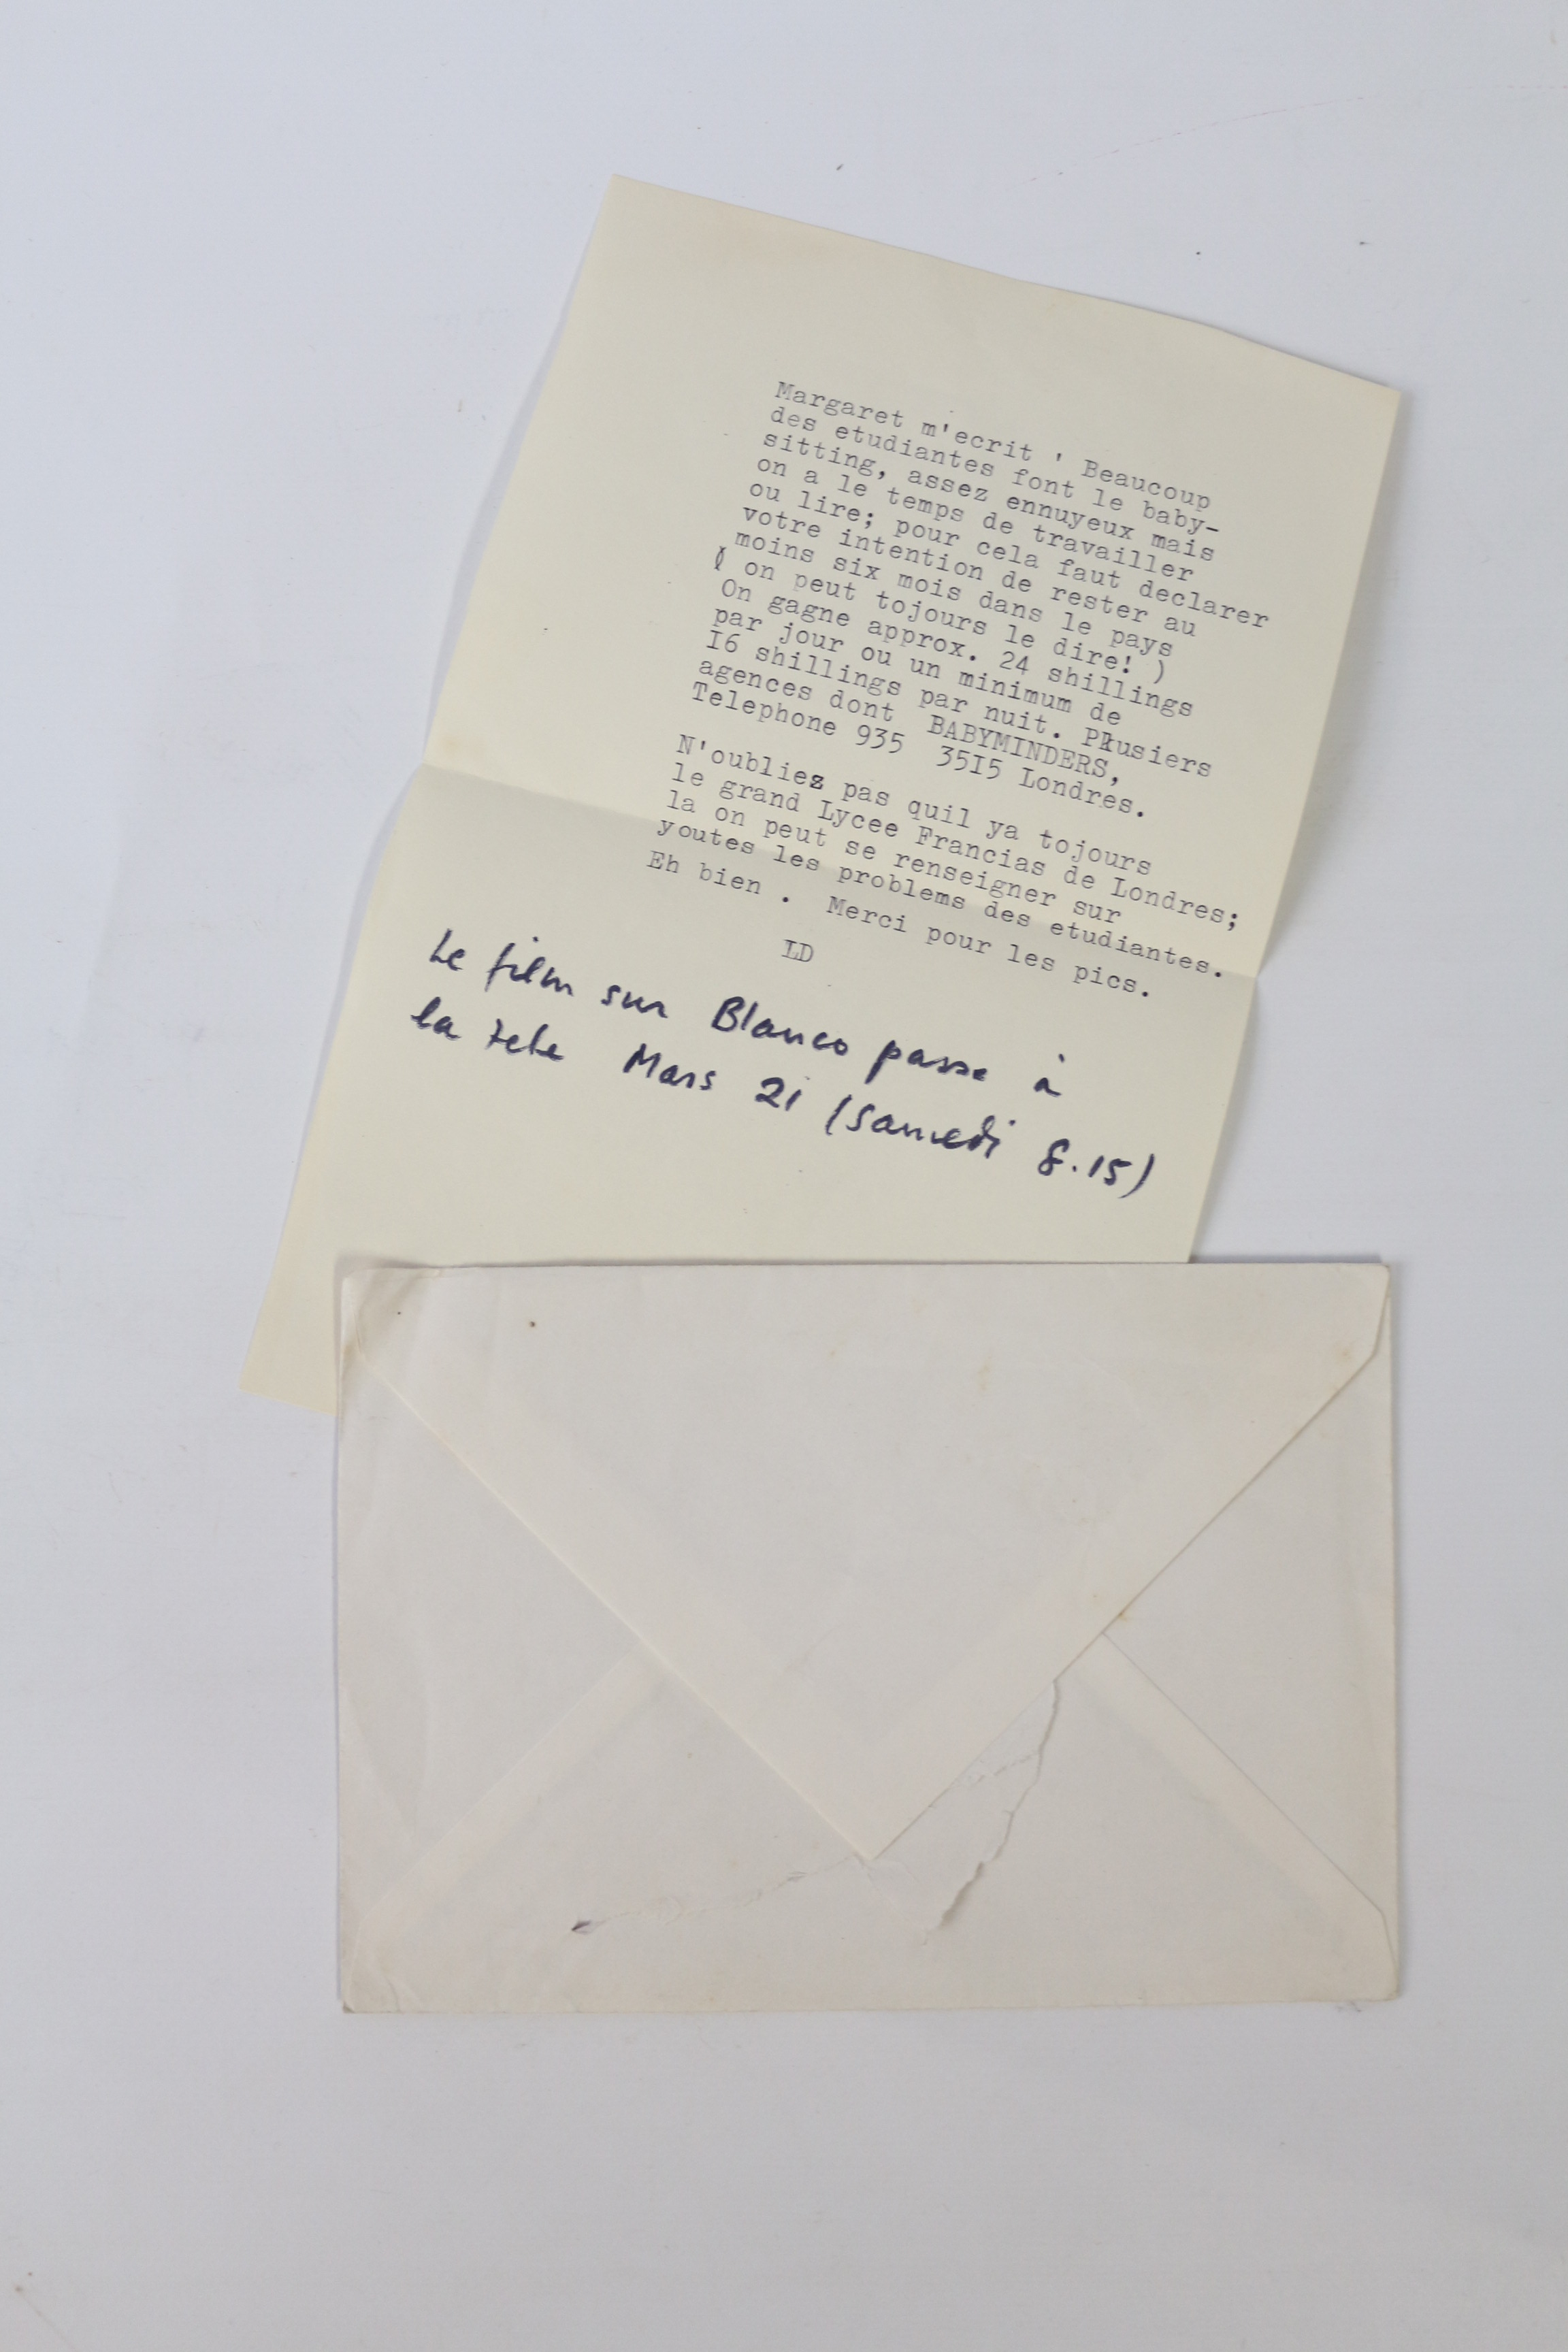 Margaret m'ecrit ' Beaucoup
des etudiantes font le baby-
sitting, assez ennuyeux mais
on a le temps de travailler
ou lire; pour cela faut declarer
votre intention de rester au
moins six mois dans le pays
( on peut tojours le dire! )
On gagne approx. 24 shillings
par jour ou un minimum de
I6 shillings par nuit. Plusiers
agences dont BABYMINDERS,
Telephone 935 35I5 Londres.
N'oubliez pas quil ya tojours
le grand Lycee Francias de Londres;
la on peut se renseigner sur
youtes les problems des etudiantes.
Eh bien . Merci pour les pics.
LD
Le film sur Blanco passe à
la tele Mars 21 (Samedi 8.15)